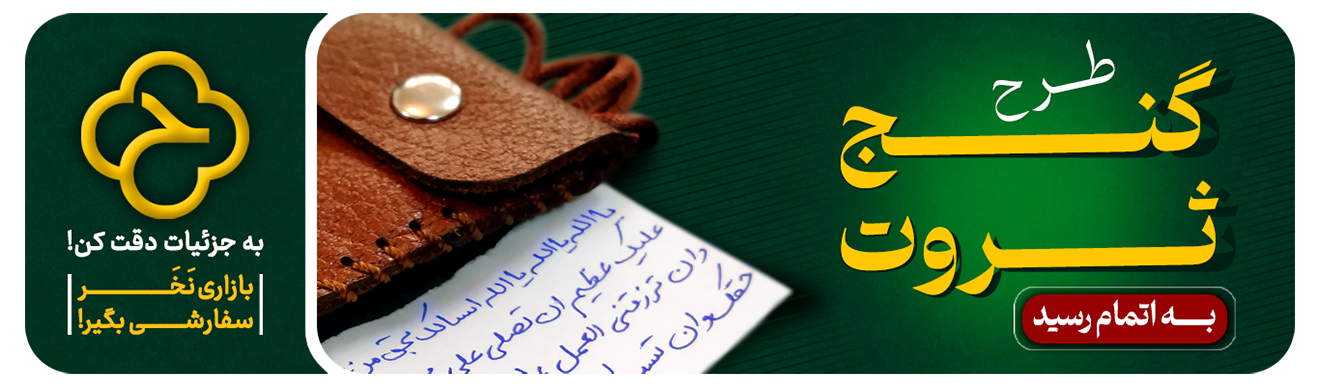 طرح
گنج
ثروت
به اتمام رسید
یا الله یا الله یا الله اسالک بحق من
علیک عظیم ان تصلی علی
ان ترزقنی العمل
حقک وان
ح
به جزئیات دقت کن!
بازاری نَخَر
سفارشی بگیر!